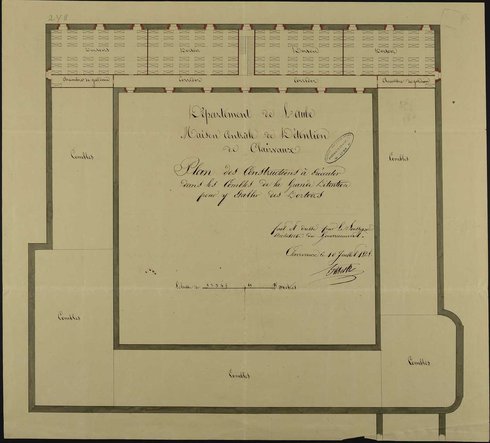 Dortoirs
Dortoir
Dortoir
Dortoir
Chambre de gardien
Corridor
Corridor
Chambre de gardien
Combles
Combles
Département de l'aube
Maison Centrale de Détention
de Clairvaux
Plan des Constructions à Exécuter
dans les Combles de la Grande Détention
pour y Etablir des Dortoirs
fait et dressé par le Soussigné
architecte du Gouvernement
Clairvaux le 10 Juillet
Echelle de
Mètres
Combles
Combles
Combles